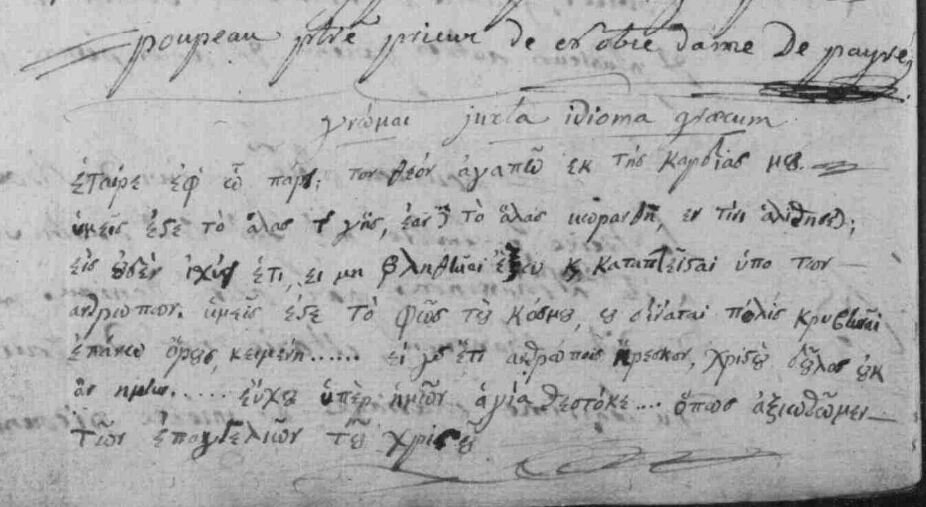 poupeau ptre prieur de nostre dame De payré
γνῶμαι juxta idioma græcum
ἑταῖρε ἐφ ᾧ πάρει; τον θεόν ἀγαπῶ εκ τῆς καρδίας μȣ.
ὑμεῖς ἐςε τὸ ἅλας τ γῆς, ἐαν δ τὸ ἅλας μωρανθῇ, εν τίνι ἁλιθησε);
εἰς ȣδὲν ἰχύει ἔτι, ει μη βληθῆναι ἔξω ϗ καταπατεῖςαι ὑπο των
ανθρωπων. ὑμεῖς ἐςε τὸ φῶς τȣ κόσμȣ, ȣ δύναται πόλις κρυβῆναι
ἐπάνω ὄρȣς κειμένη...... ει γαρ ἔτι ανθρώποις ἤρεσκον, χριςȣ δȣλος ȣκ
ἂν ημιν...... εὔχȣ ὑπὲρ ἡμῶν ἁγία θεοτόκε... ὅπως ἀξιωθῶμεν
τῶν ἐπαγγελιῶν τȣ χριςȣ